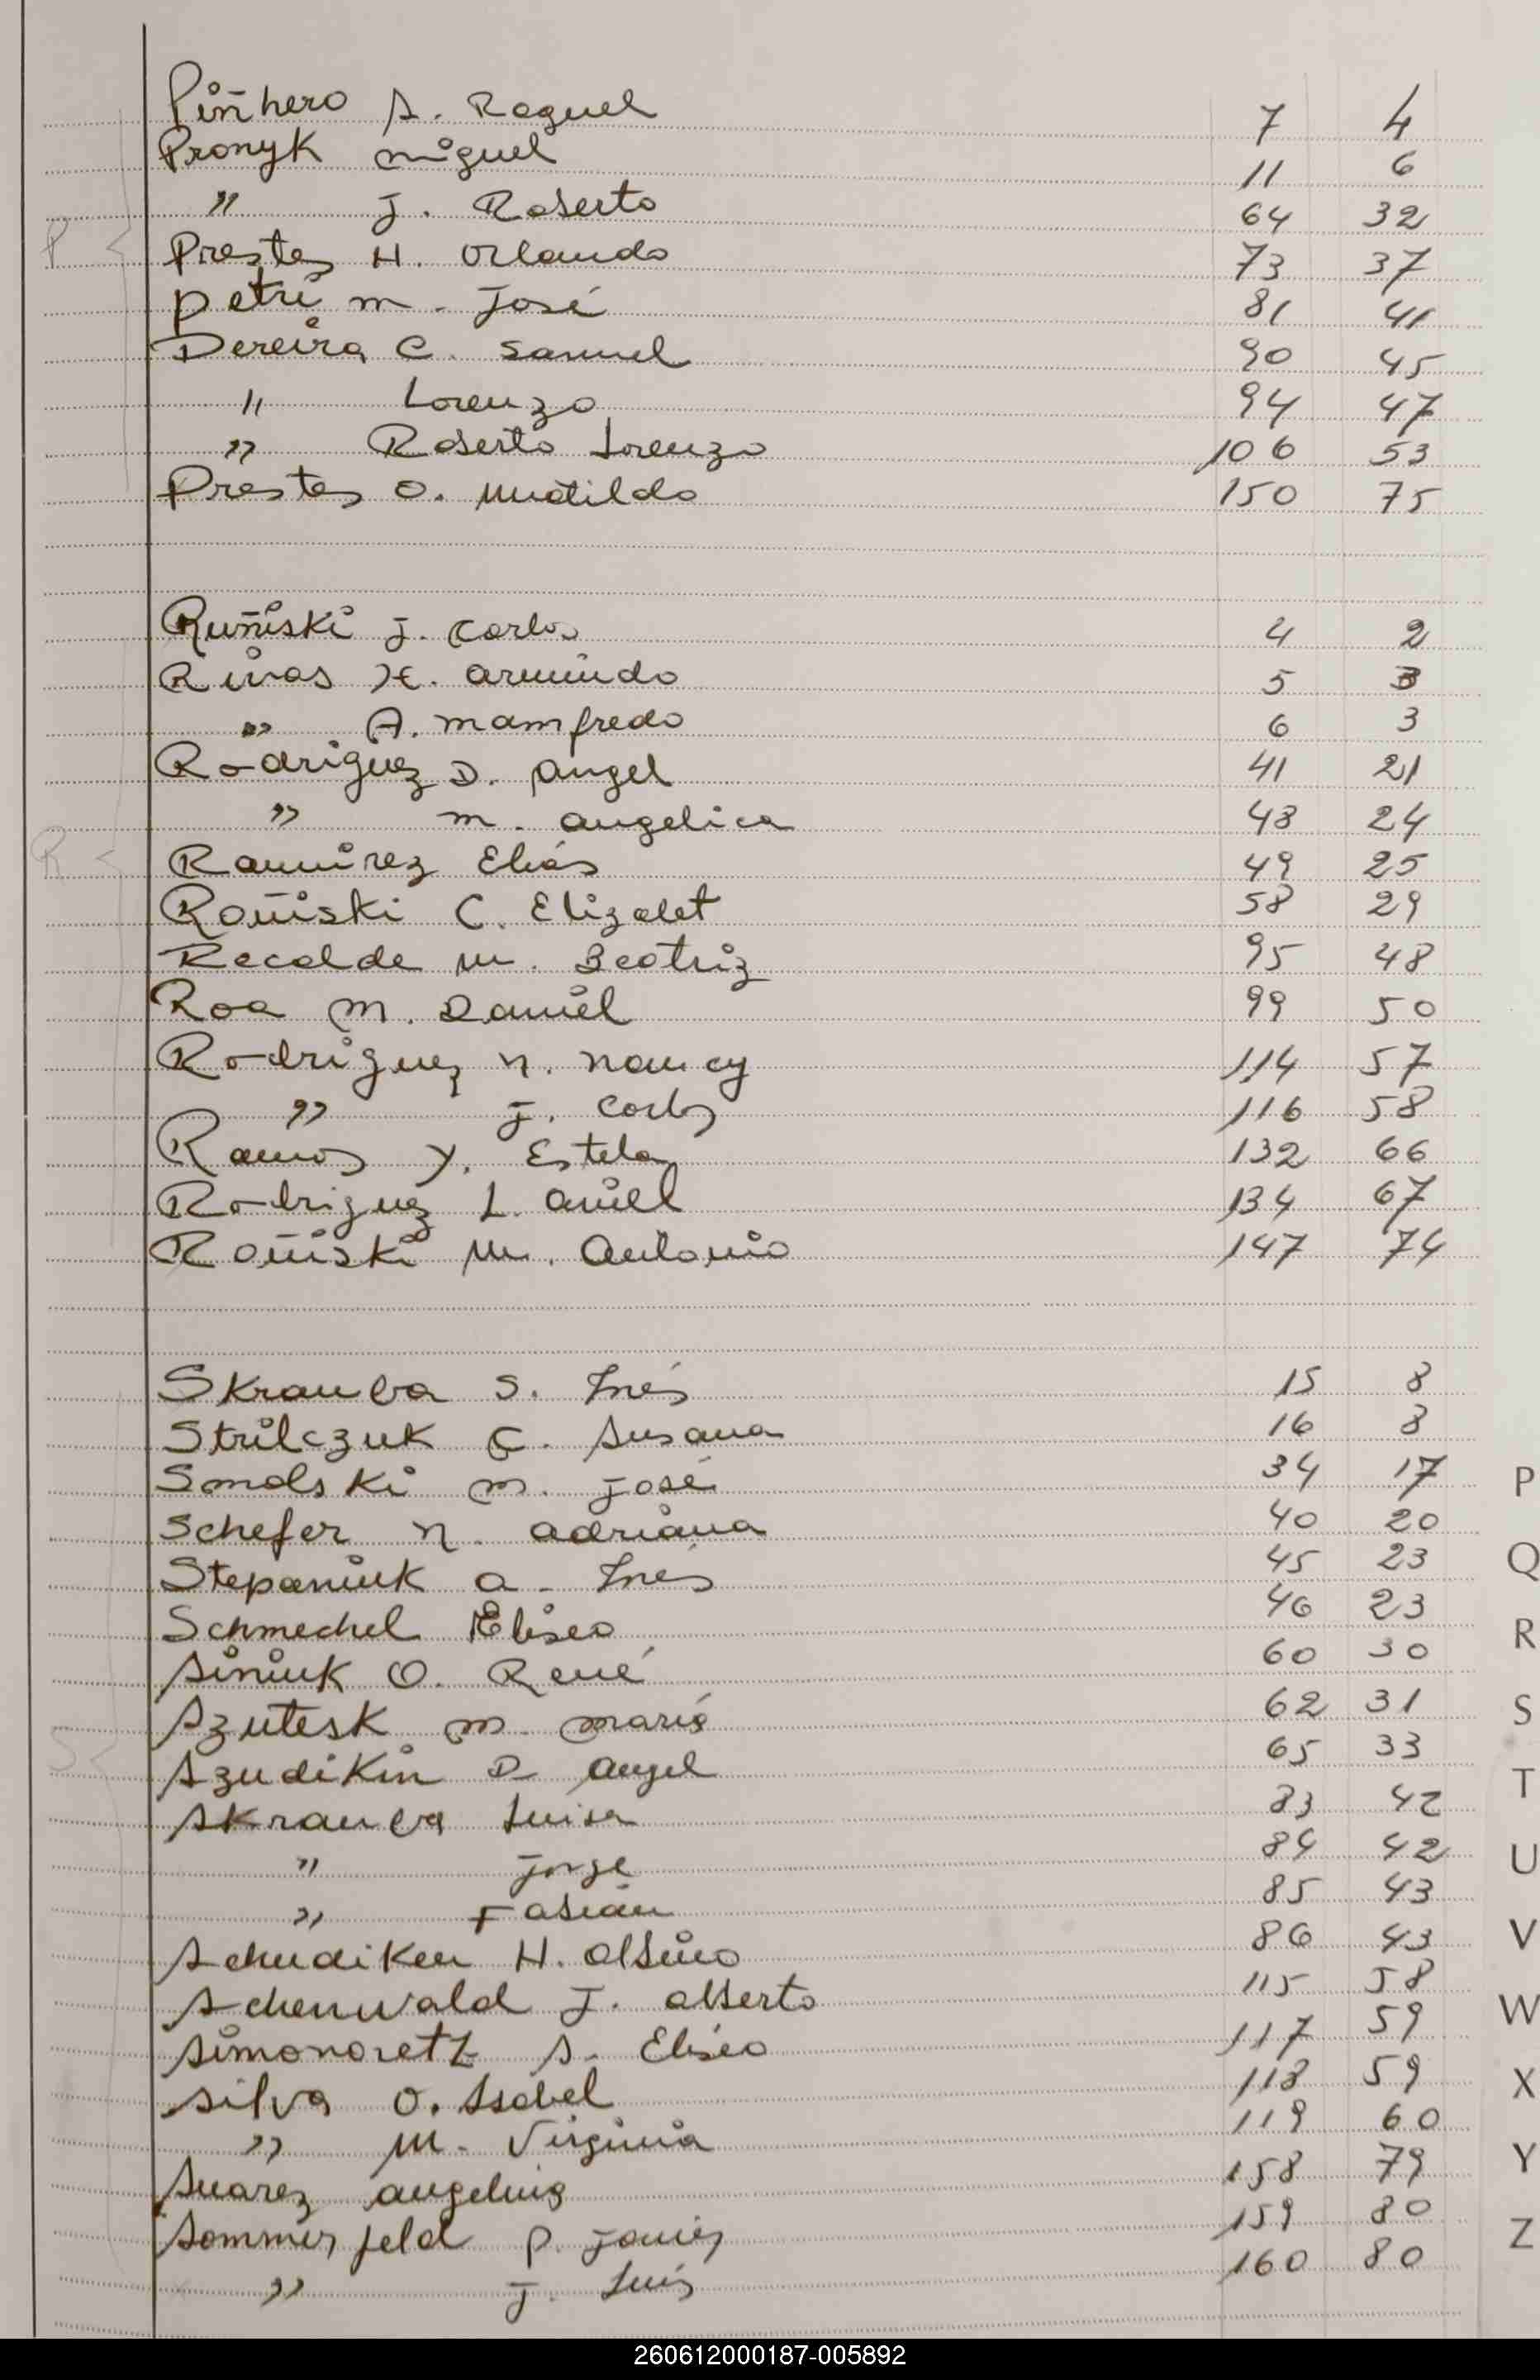 Piñhero S. Raquel 7 4
Pronyk Miguel 11 6
" J. Roberto 64 32
P
Prestes H. Orlando 73 37
Petri M. José 81 41
Pereira C. Samuel 90 45
" Lorenzo 94 47
" Roberto Lorenzo 106 53
Prestes O. Matilde 150 75
Ruñiski J. Carlos 4 2
Rivas H. Armindo 5 3
" A. Mamfredo 6 3
Rodriguez D. Angel 41 21
" M. Angelica 48 24
R
Ramirez Eliás 49 25
Roñiski C. Elizabet 58 29
Recalde M. Beatriz 95 48
Roa M. Daniel 99 50
Rodriguez N. Nancy 114 57
" J. Carlos 116 58
Ramos Y. Estela 132 66
Rodriguez L. Ariel 134 67
Roñiski M. Antonio 147 74
Skrauba S. Inés 15 8
Strilczuk C. Susana 16 8
Smolski M. José 34 17
P
Schefer N. Adriana 40 20
Stepaniuk A. Inés 45 23
Q
Schmechel Eliseo 46 23
R
Siniuk O. René 60 30
Szutesk M. Mariá 62 31
S
S
Szudikin D Angel 65 33
T
Skrauba Luisa 83 42
" Jorge 84 42
U
" Fabián 85 43
Schudiken H. Albino 86 43
V
Schenwald J. Alberto 115 58
W
Simonoretz S. Eliseo 117 59
Silva O. Isabel 118 59
X
" M. Virginia 119 60
Y
Suarez Angelina 158 79
Sommerfeld P. Javier 159 80
Z
" J. Luis 160 80
260612000187-005892